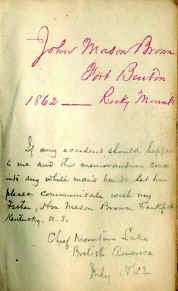 John Mason Brown
Fort Benton
1862 — Rocky Mount
If any accident should happen
to me and this memorandum come
into any white man's hands let him
please communicate with my
Father, Hon Mason Brown Frankfort
Kentucky, U.S.
Chief Mountain Lake
British America
July 1862